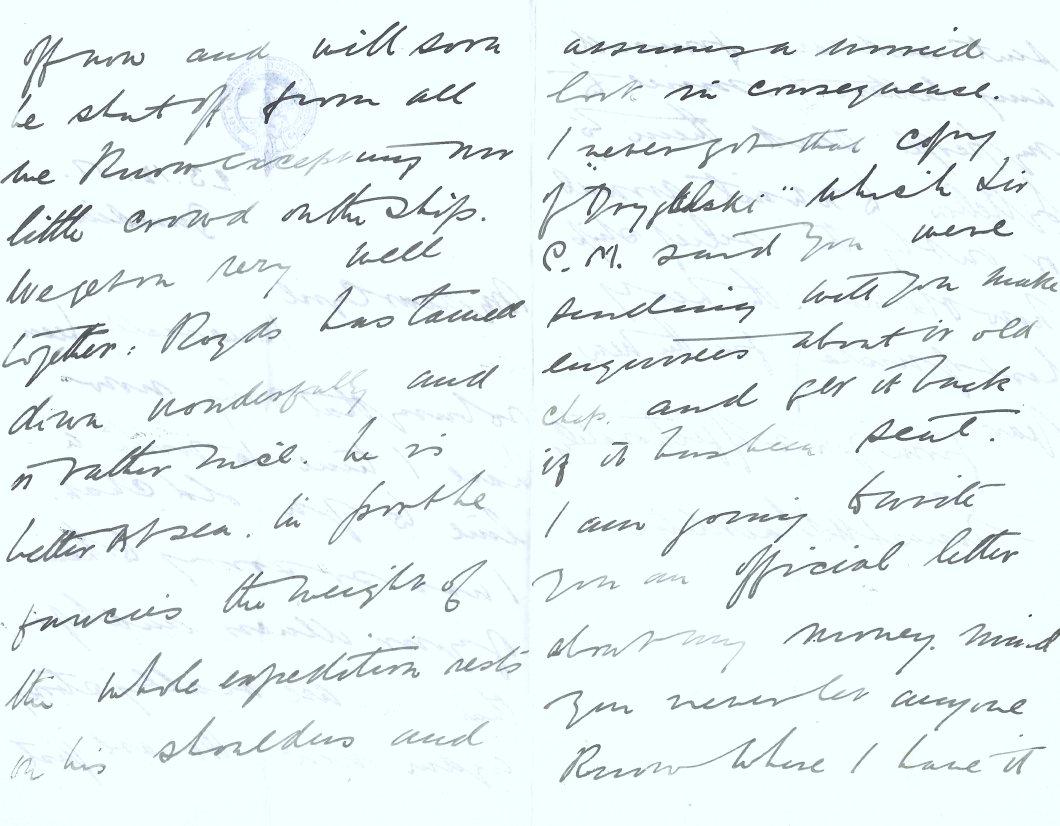 off now and will soon
be shut off from all
we know except my our
little crowd on the ship.
We get on very well
together: Royds has tamed
down wonderfully and
is rather nice. he is
better at sea. In port he
fancies the weight of
the whole expedition rests
on his shoulders and
assumes a worried
look in consequence.
I never got that copy
of "Drygalski" which Sir
C. M. said you were
sending will you make
enquiries about it old
chap. and get it back
if it has been sent.
I am going to write
you an official letter
about my money. mind
you never let anyone
know where I have it